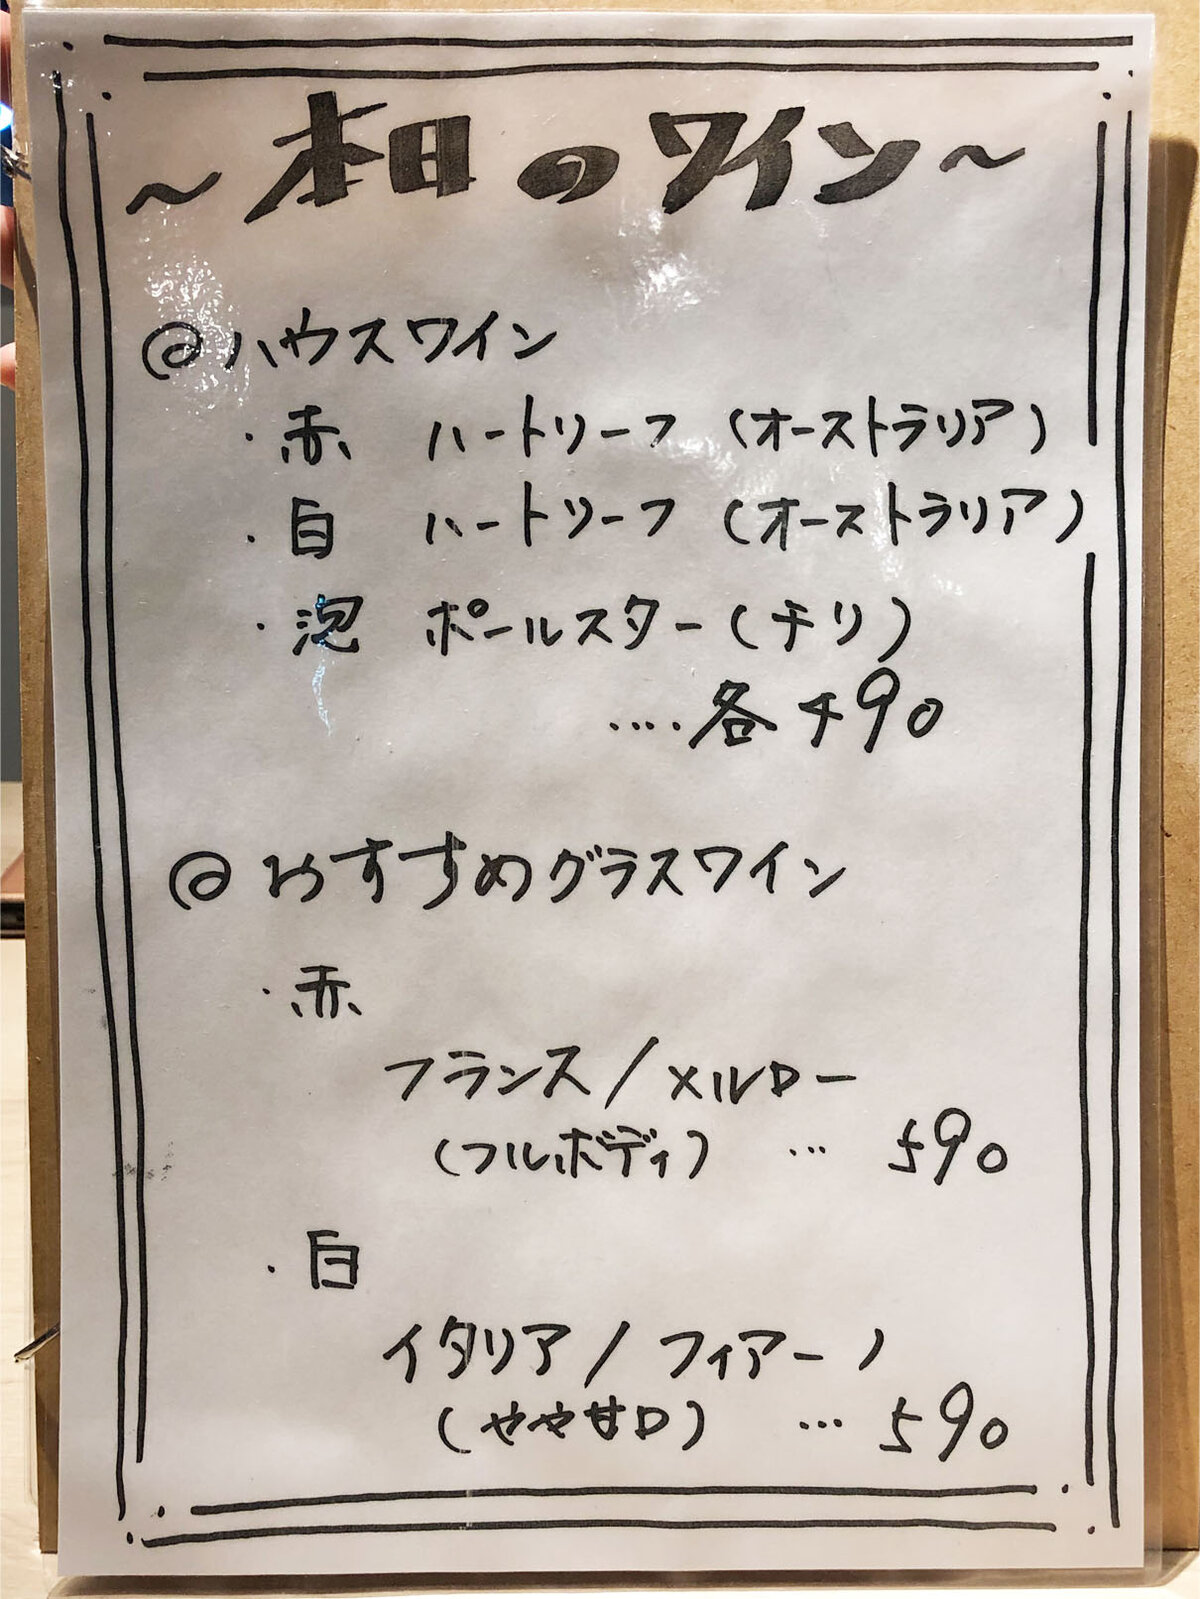 ～本日のワイン～
@ハウスワイン
・赤 ハートリーフ (オーストラリア)
・白 ハートリーフ (オーストラリア)
・泡 ポールスター (チリ)
....各490
@おすすめグラスワイン
・赤
フランス/メルロー
(フルボディ) ... 590
・白
イタリア/フィアーノ
(やや甘口) ... 590